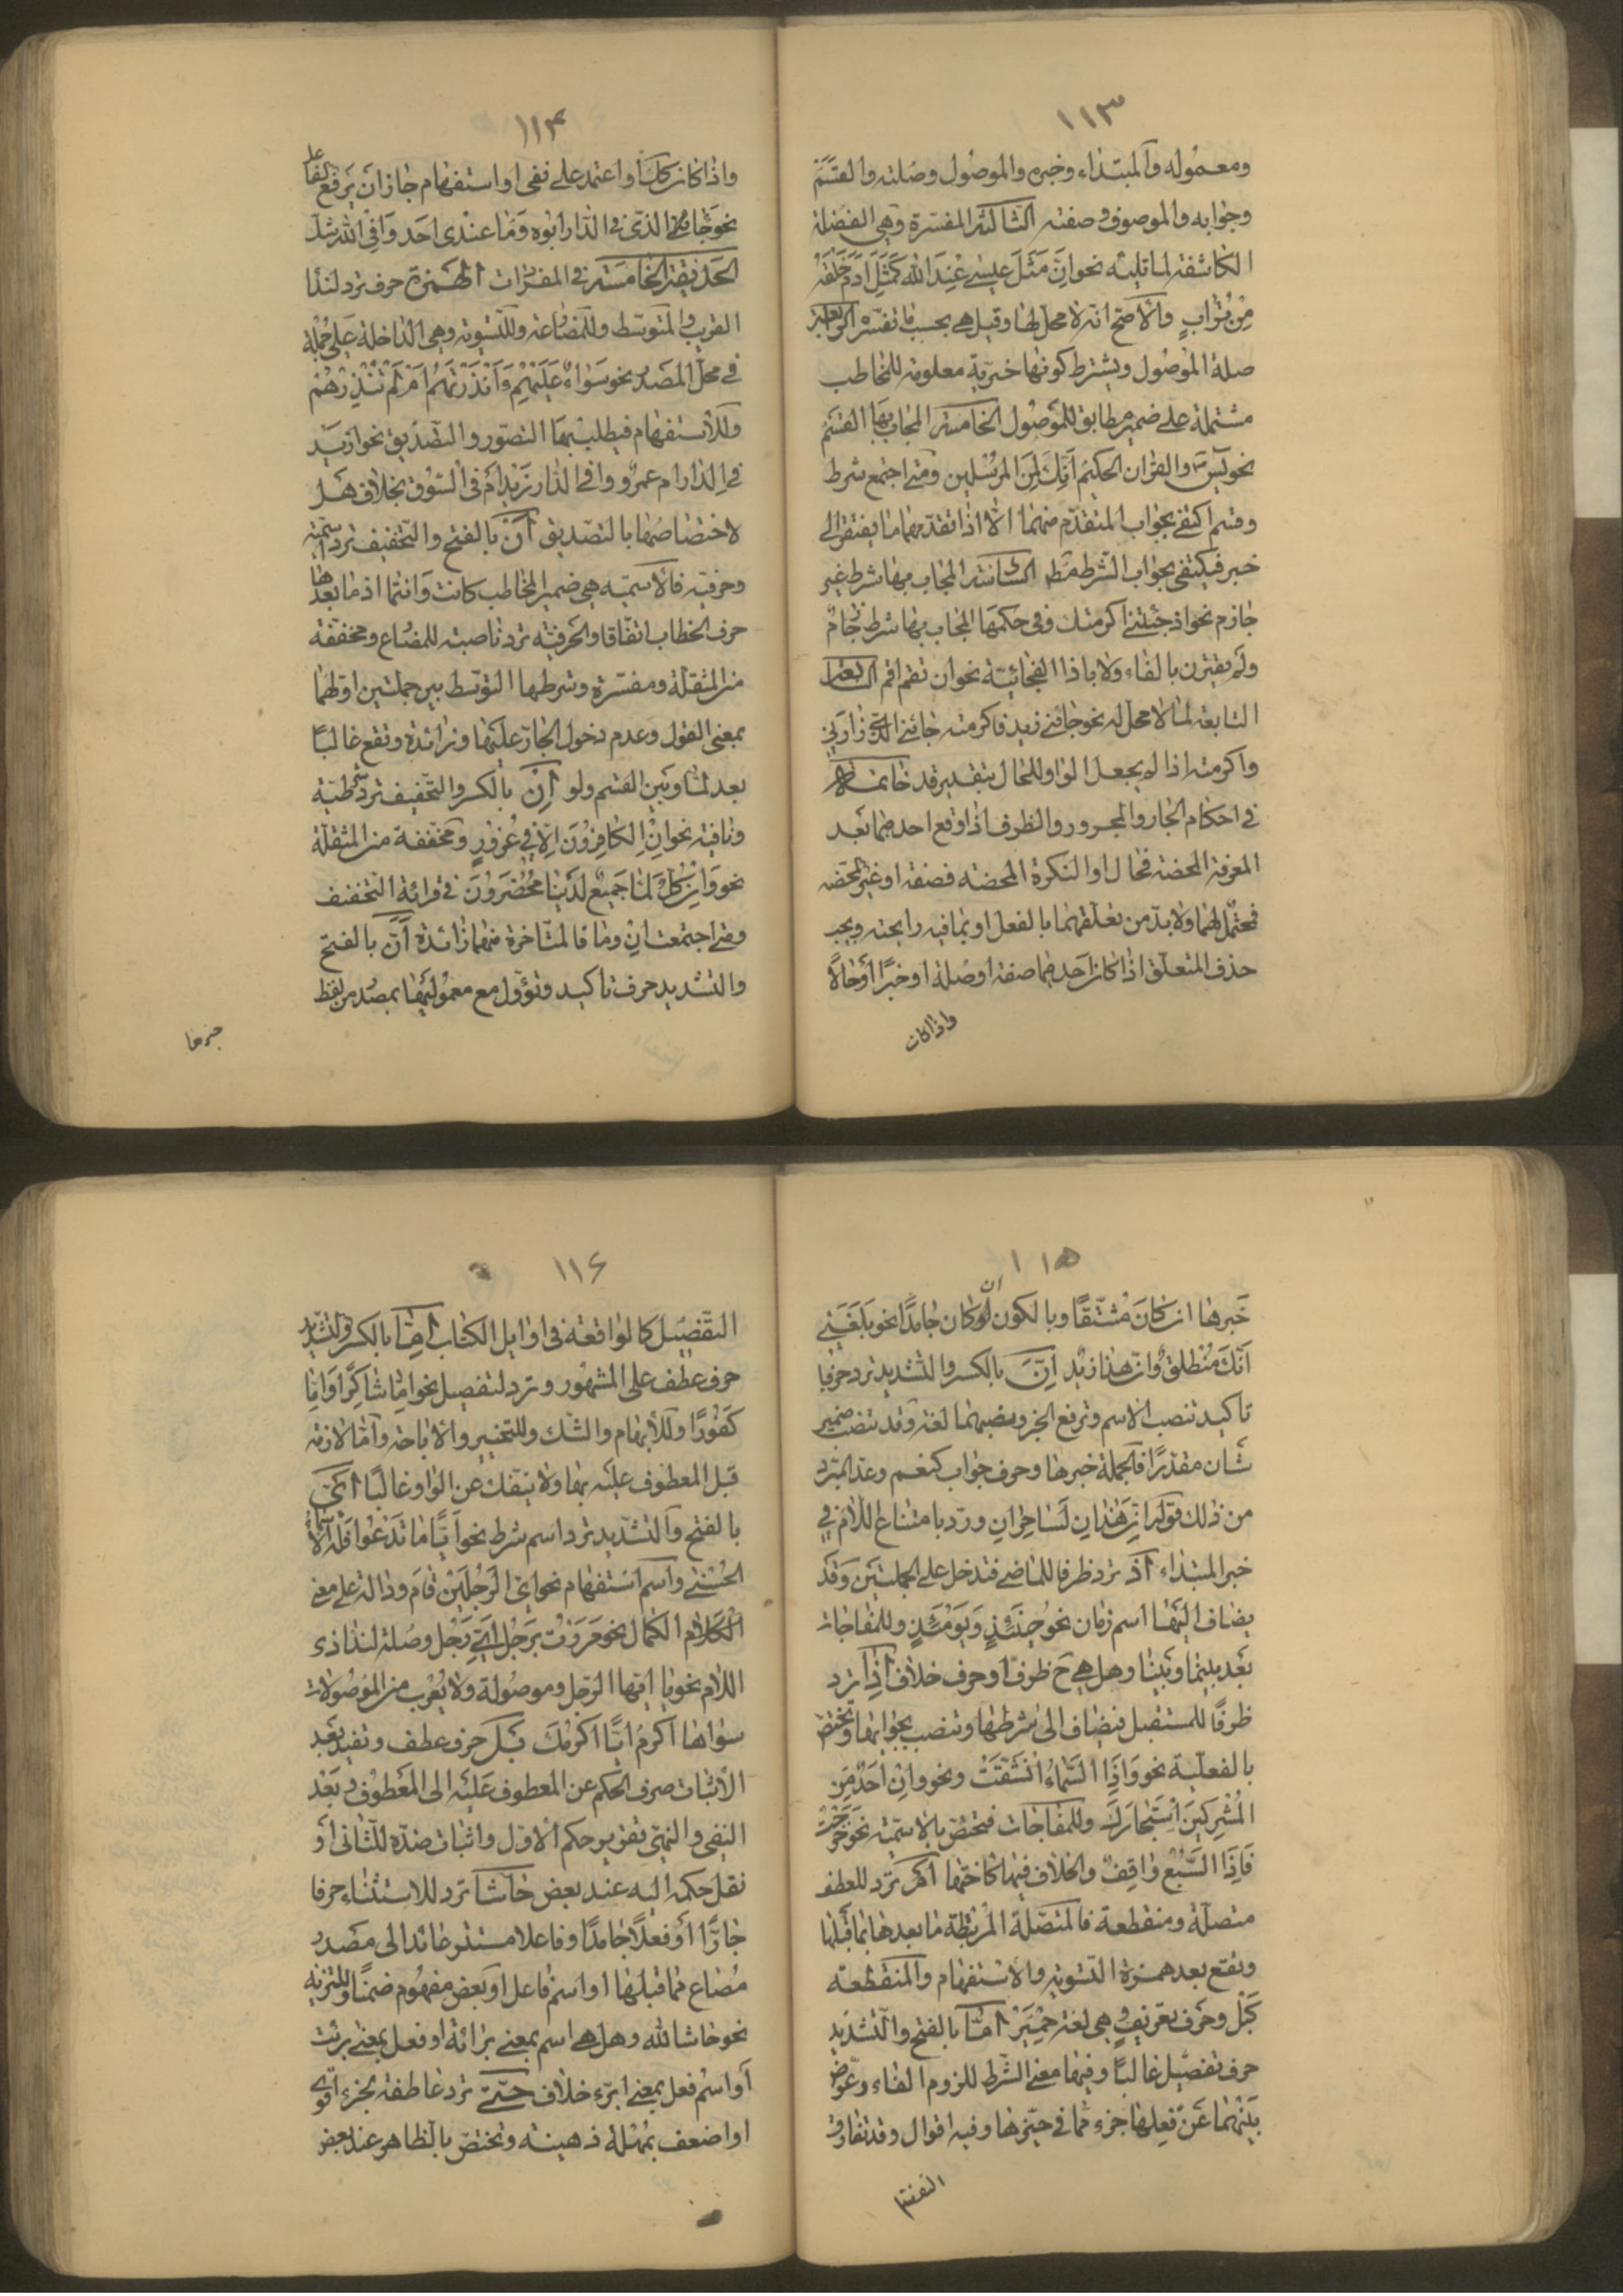 ١١٣
ومعموله والمبتداء وخبره والموصول وصلته والقسم
وجوابه والموصوف وصفته الثالثة المفسرة وهي الفضلة
الكاشفة لما تليه نحو اِنَّ مَثَلَ عيسى عِندَ الله كَمَثَلِ ادَمَ خَلَقَهُ
مِنْ تُرابٍ والاصح انه لا محل لها وقيل هي بحسب ما تفسره الرابعة
صلة الموصول ويشترط كونها خبرية معلومة للمخاطب
مشتملة على ضمير مطابق للموصول الخامسة المجاب بها القسم
نحو يس والقران الحكيم اِنّكَ لَمِنَ المرسلين ومتى اجتمع شرط
وقسم اكتفى بجواب المتقدم منهما الا اذا تقدمهما ما يفتقر الى
خبر فيكتفى بجواب الشرط مط السادسة المجاب بها شرط غير
جازم نحو اذ جئتني اكرمتك وفي حكمها المجاب بها شرط جازم
ولم يقترن بالفاء ولا باذا الفجائية نحو ان تقم اقم السابعة
التابعة لما لا محل له نحو جائني زيد فاكرمته جائني الذي زارني
واكرمته اذا لم يجعل الواو للحال بتقدير قد خاتمة
في احكام الجار والمجرور والظرف اذا وقع احدهما بعد
المعرفة المحضة فحال او النكرة المحضة فصفة او غير المحضة
فمحتمل لهما ولا بد من تعلقهما بالفعل او بما فيه رايحته ويجب
حذف المتعلق اذا كان احدهما صفة او صلة او خبرًا او حالًا
واذا كان
١١٤
واذا كان كك او اعتمد على نفي او استفهام جاز ان يرفع الفاعل
نحو جائني الذي في الدار ابوه وَمَا عندي احد وَافي الله شك
الحديقة الخامسة في المفردات الهمزة حرف ترد لندا
القريب والمتوسط وللمضارعة وللتسوية وهي الداخلة على جملة
في محل المصدر نحو سَواءٌ عَلَيْهِم ءَاَنْذَرْتَهُم اَمْ لَمْ تُنْذِرْهُمْ
وللاستفهام فيطلب بها التصور والتصديق نحو ازيد
في الدار ام عمرو وافي الدار زيد ام في السوق بخلاف هل
لاختصاصها بالتصديق اَنْ بالفتح والتخفيف ترد اسمية
وحرفية فالاسمية هي ضمير المخاطب كانت وانتما اذ ما بعدها
حرف الخطاب اتفاقا والحرفية ترد ناصبة للمضارع ومخففة
من المثقلة ومفسرة وشرطها التوسط بين جملتين اولهما
بمعنى القول وعدم دخول الجار عليها وزائدة وتقع غالبًا
بعد لمّا وبين القسم ولو اِنْ بالكسر والتخفيف ترد شرطية
ونافية نحو اِنِ الكافِرُونَ اِلّا في غُرُورٍ ومخففة من المثقلة
نحو وَاِنْ كُلٌّ لَمّا جَميعٌ لَدَيْنا مُحْضَرُونَ في قرائة التخفيف
ومتى اجتمعت ان وما فالمتاخرة منهما زائدة اَنَّ بالفتح
والتشديد حرف تاكيد وتؤول مع معموليها بمصدر من لفظ
خبرها
١١٥
خَبرها ان كانَ مُشتقًا وبالكون ان لو كان جامدًا نحو بلغني
اَنَّكَ مُنْطَلِقٌ وان هذا زيد اِنَّ بالكسر والتشديد ترد حرف
تاكيد تنصب الاسم وترفع الخبر ونصبهما لغة وقد تنصب ضمير
شان مقدرًا فالجملة خبرها وحرف جواب كنعم وعد المبرد
من ذلك قوله ان هذان لساحران ورد بامتناع اللام في
خبر المبتداء اذ ترد ظرفا للماضي فتدخل على الجملتين وقد
يضاف اليها اسم زمان نحو حينَئذٍ وَيَوْمَئذٍ وللمفاجات
بَعْد بينما وبَيْنا وهل هي ح ظرف او حرف خلاف اِذا ترد
ظرفًا للمستقبل فيضاف الى شرطها وتنصب بجوابها وتختص
بالفعلية نحو وَاِذَا السَّماءُ انْشَقَّتْ ونحو وانْ اَحَدٌ مِنَ
المُشْرِكينَ اسْتَجارَكَ وللمفاجات فتختص بالاسمية نحو خرجت
فَاِذَا السَّبُعُ واقِفٌ والخلاف فيها كاختها اَمْ ترد للعطف
متصلة ومنقطعة فالمتصلة المرتبطة ما بعدها بما قبلها
وتقع بعد همزة التسوية والاستفهام والمنقطعة
كبَلْ وحَرف تعريفٍ وهي لغة حِمْيَرْ اَمّا بالفتح والتشديد
حرف تفصيل غالبًا وفيها معنى الشرط للزوم الفاء وعوض
بَيْنَهُما عَنْ فِعلها جزء مما في حيزها وفيه اقوال وقد تفارق
التفصيل
١١٦
التفصيل كالواقعة في اوايل الكتاب اِمّا بالكسر والتشديد
حرف عطف على المشهور وترد لتفصيل نحو اِمّا شاكِرًا وَاِمّا
كَفُورًا وللابهام والشك وللتخيير والاباحة وامّا لازمة
قبل المعطوف عليه بها ولا ينفك عن الواو غالبًا اَيّ
بالفتح والتشديد ترد اسم شرط نحو اَيًّا ما تَدْعُوا فَلَهُ الاَسْماءُ
الحُسْنى واسم استفهام نحو اىّ الرَجُلَيْن قام ودالة على معنى
الكمال نحو مَرَرْتُ بِرَجُلٍ اَيِّ رَجُل وصلة لنداء ذي
اللام نحو يا ايها الرجل وموصولة ولا يُعْرَب من الموصولات
سواها اكرم ايًّا اكرمك بَلْ حرف عطف وتفيد بَعْد
الاثبات صرف الحكم عن المعطوف عَلَيْه الى المعطوف وبَعْد
النفي والنهي تقرير حكم الاول واثبات ضده للثاني اَو
نقل حكمه اليه عند بعض حاشا ترد للاستثناء حرفا
جارًّا اَو فعلًا جامدًا وفاعلها مستتر عائد الى مصدر
مُصاغ مما قبلها او اسم فاعل او بعض مفهوم ضمنًا وللتنزيه
نحو حاشا لله وهل هي اسم بمعنى برائة او فعل بمعنى برئت
اَو اسم فعل بمعنى ابرء خلاف حتّى ترد عاطفة لجزء اقوى
او اضعف بمُهْلَة ذهينة وتختص بالظاهر عند بعض